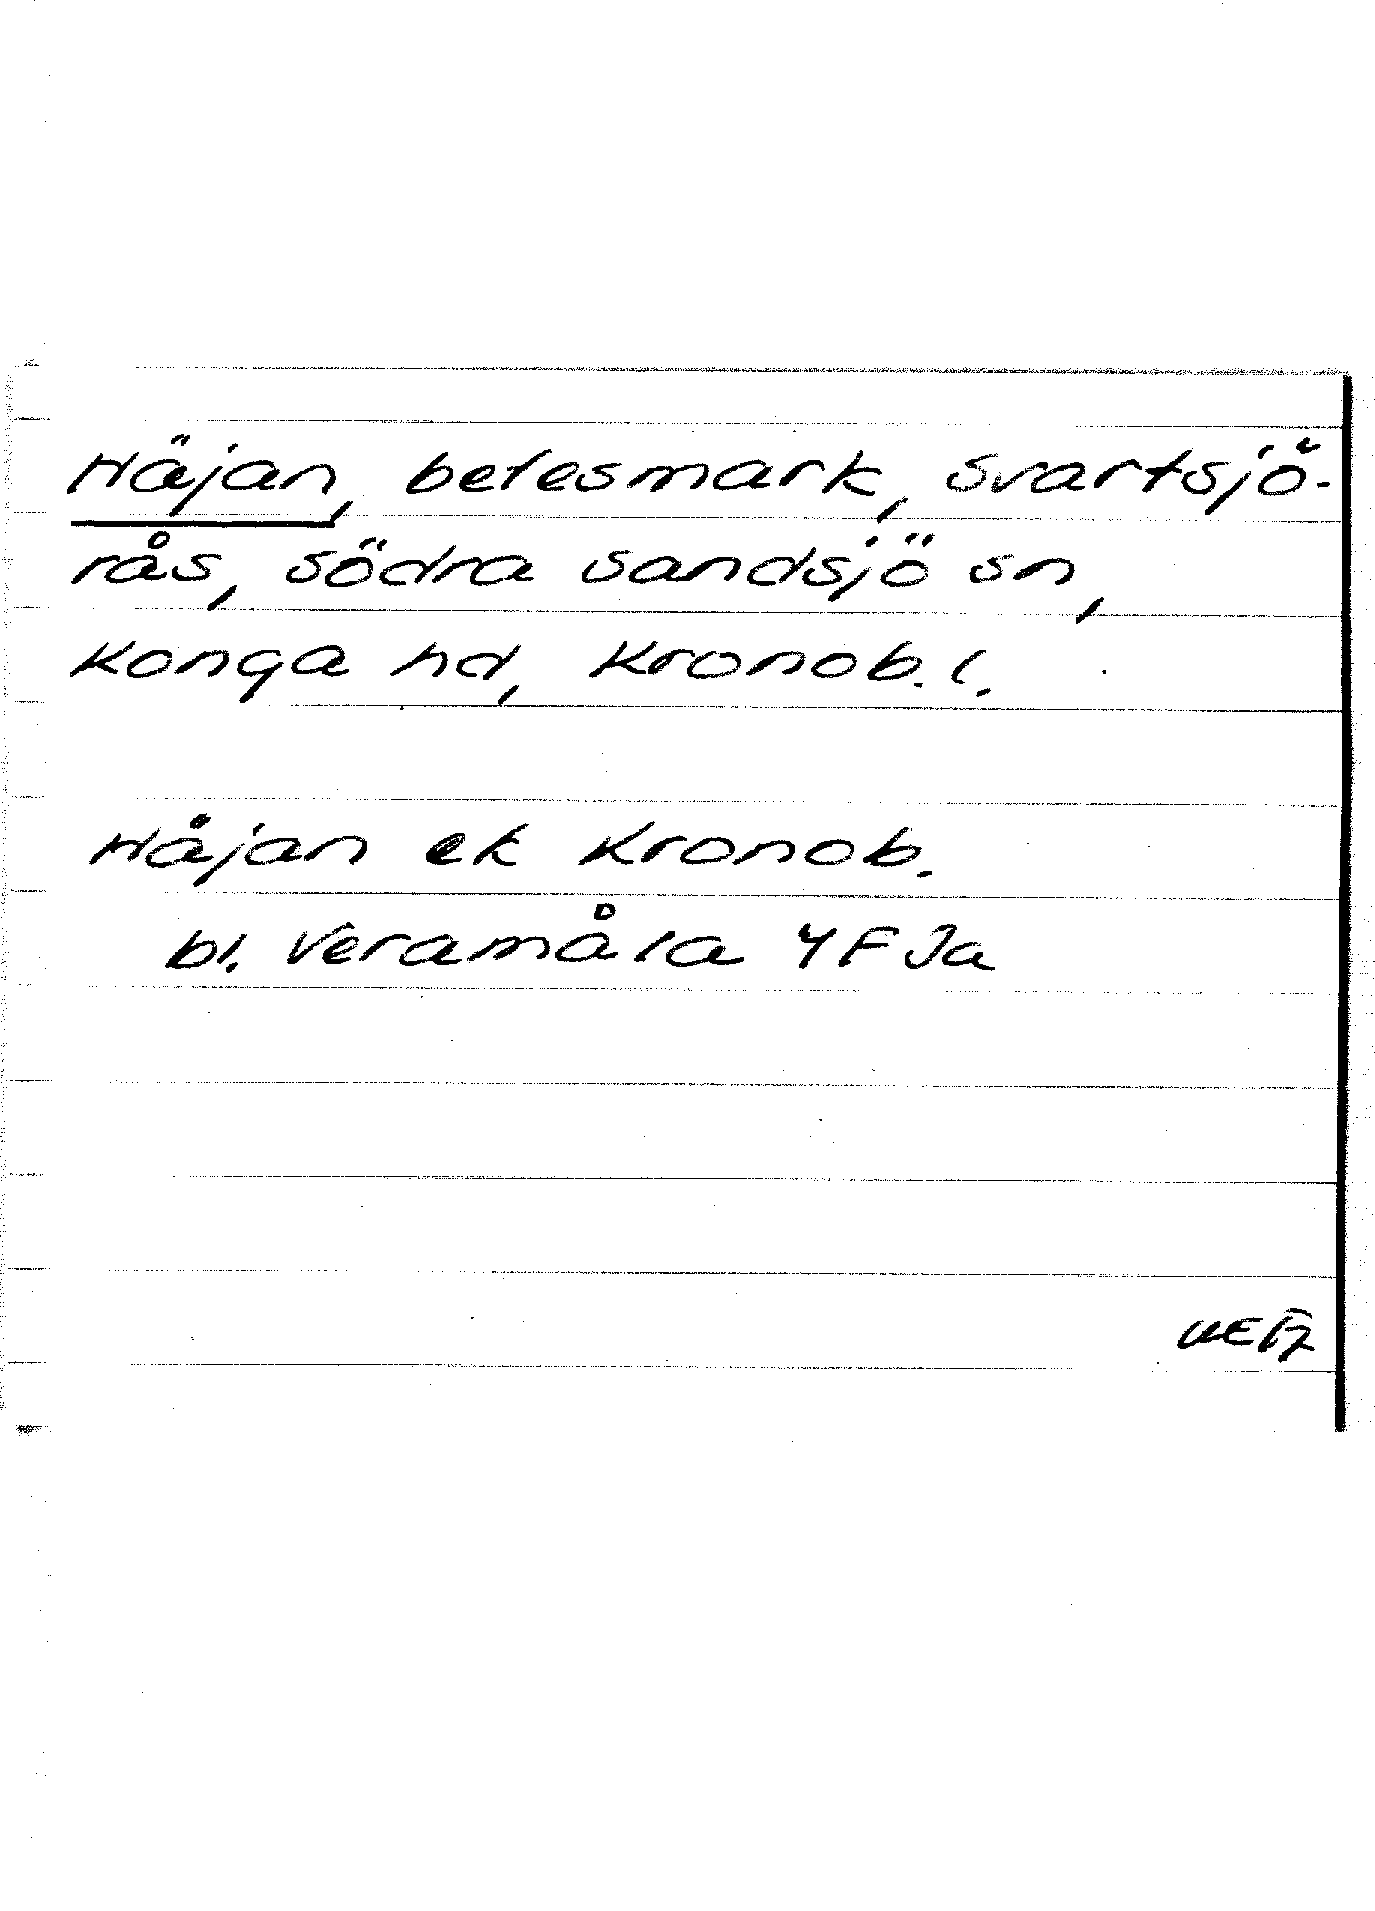 Häjan, betesmark, Svartsjö-
rås, Södra Sandsjö sn,
Konga hd, Kronob. l.
Håjan ek Kronob.
bl. Veramåla 4F Ja